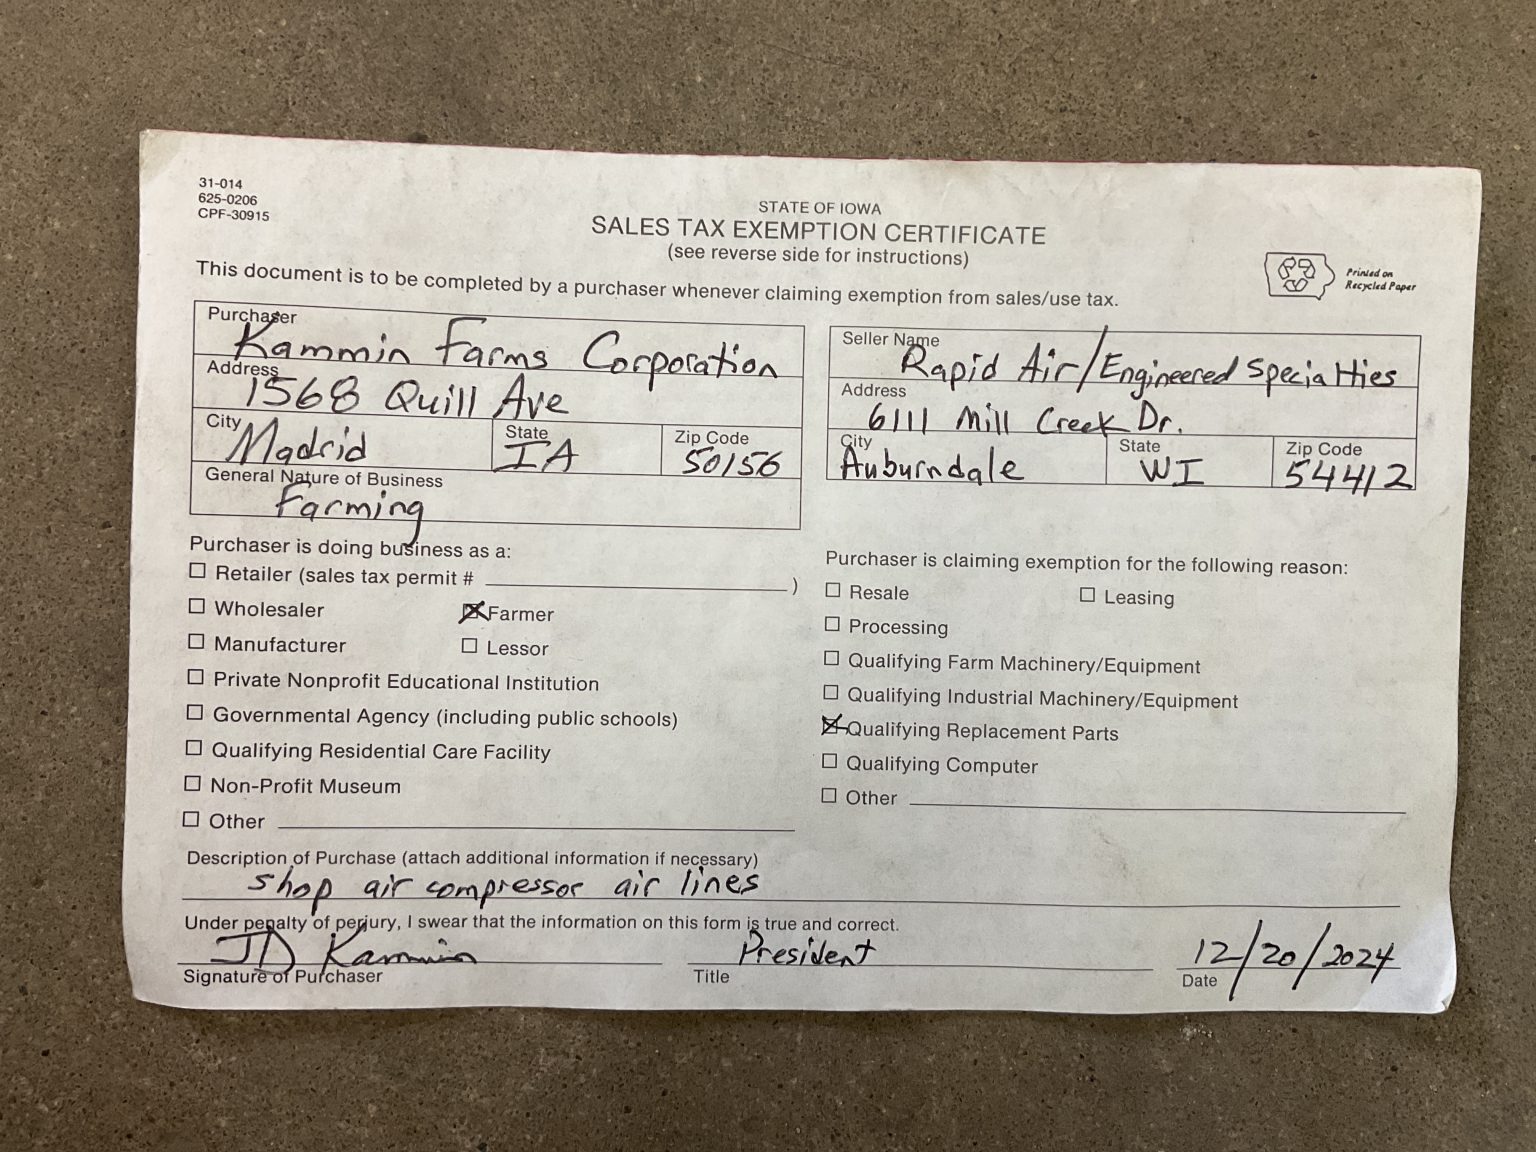 31-014
625-0206
CPF-30915
STATE OF IOWA
SALES TAX EXEMPTION CERTIFICATE
(see reverse side for instructions)
Printed on
Recycled Paper
This document is to be completed by a purchaser whenever claiming exemption from sales/use tax.
Purchaser
Kammin Farms Corporation
Address
1568 Quill Ave
City
Madrid
State
IA
Zip Code
50156
General Nature of Business
Farming
Seller Name
Rapid Air/Engineered Specialties
Address
6111 Mill Creek Dr.
City
Auburndale
State
WI
Zip Code
54412
Purchaser is doing business as a:
Retailer (sales tax permit # )
Wholesaler
Farmer
Manufacturer
Lessor
Private Nonprofit Educational Institution
Governmental Agency (including public schools)
Qualifying Residential Care Facility
Non-Profit Museum
Other
Purchaser is claiming exemption for the following reason:
Resale
Leasing
Processing
Qualifying Farm Machinery/Equipment
Qualifying Industrial Machinery/Equipment
Qualifying Replacement Parts
Qualifying Computer
Other
Description of Purchase (attach additional information if necessary)
shop air compressor air lines
Under penalty of perjury, I swear that the information on this form is true and correct.
JD Kammin
President
12/20/2024
Signature of Purchaser
Title
Date